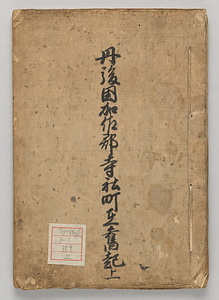 丹後国加佐郡寺社町在旧起上